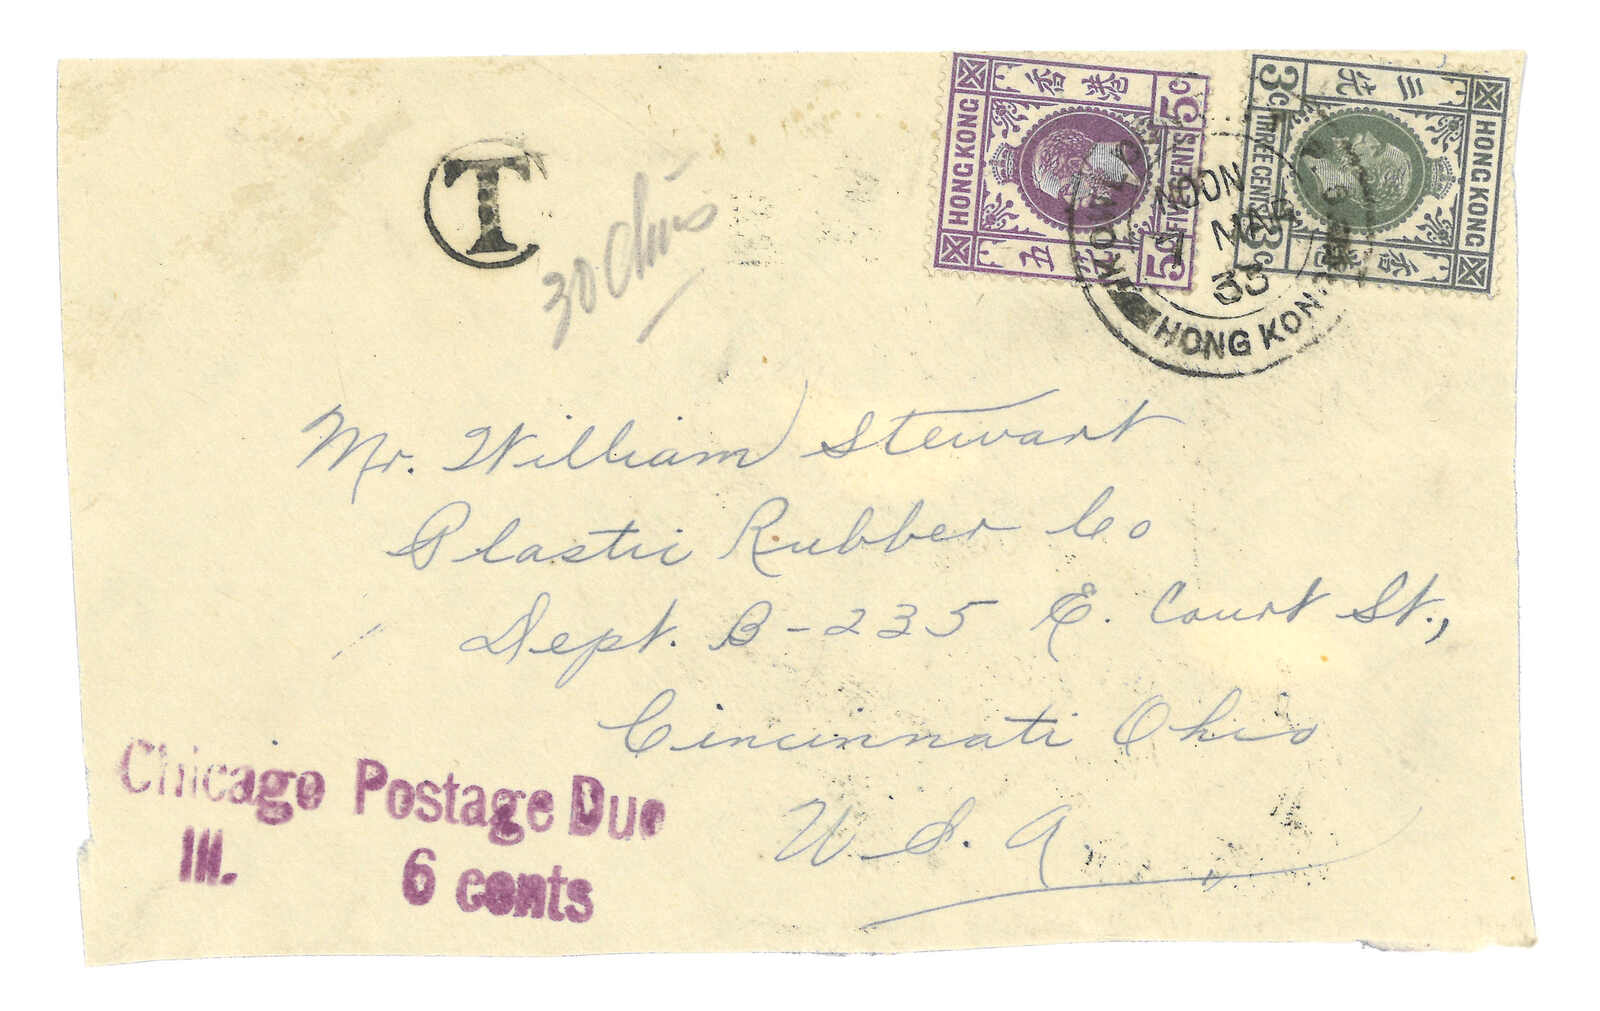 香港
HONG KONG
5c
FIVE CENTS
5c
五
三先
3c
THREE CENTS
3c
HONG KONG
香港
KOWLOON
NOON
33
HONG KONG
T
30 Ctms
Mr. William Stewart
Plastic Rubber Co
Dept. B-235 E. Court St.,
Cincinnati Ohio
U.S.A.
Chicago Postage Due
Ill. 6 cents